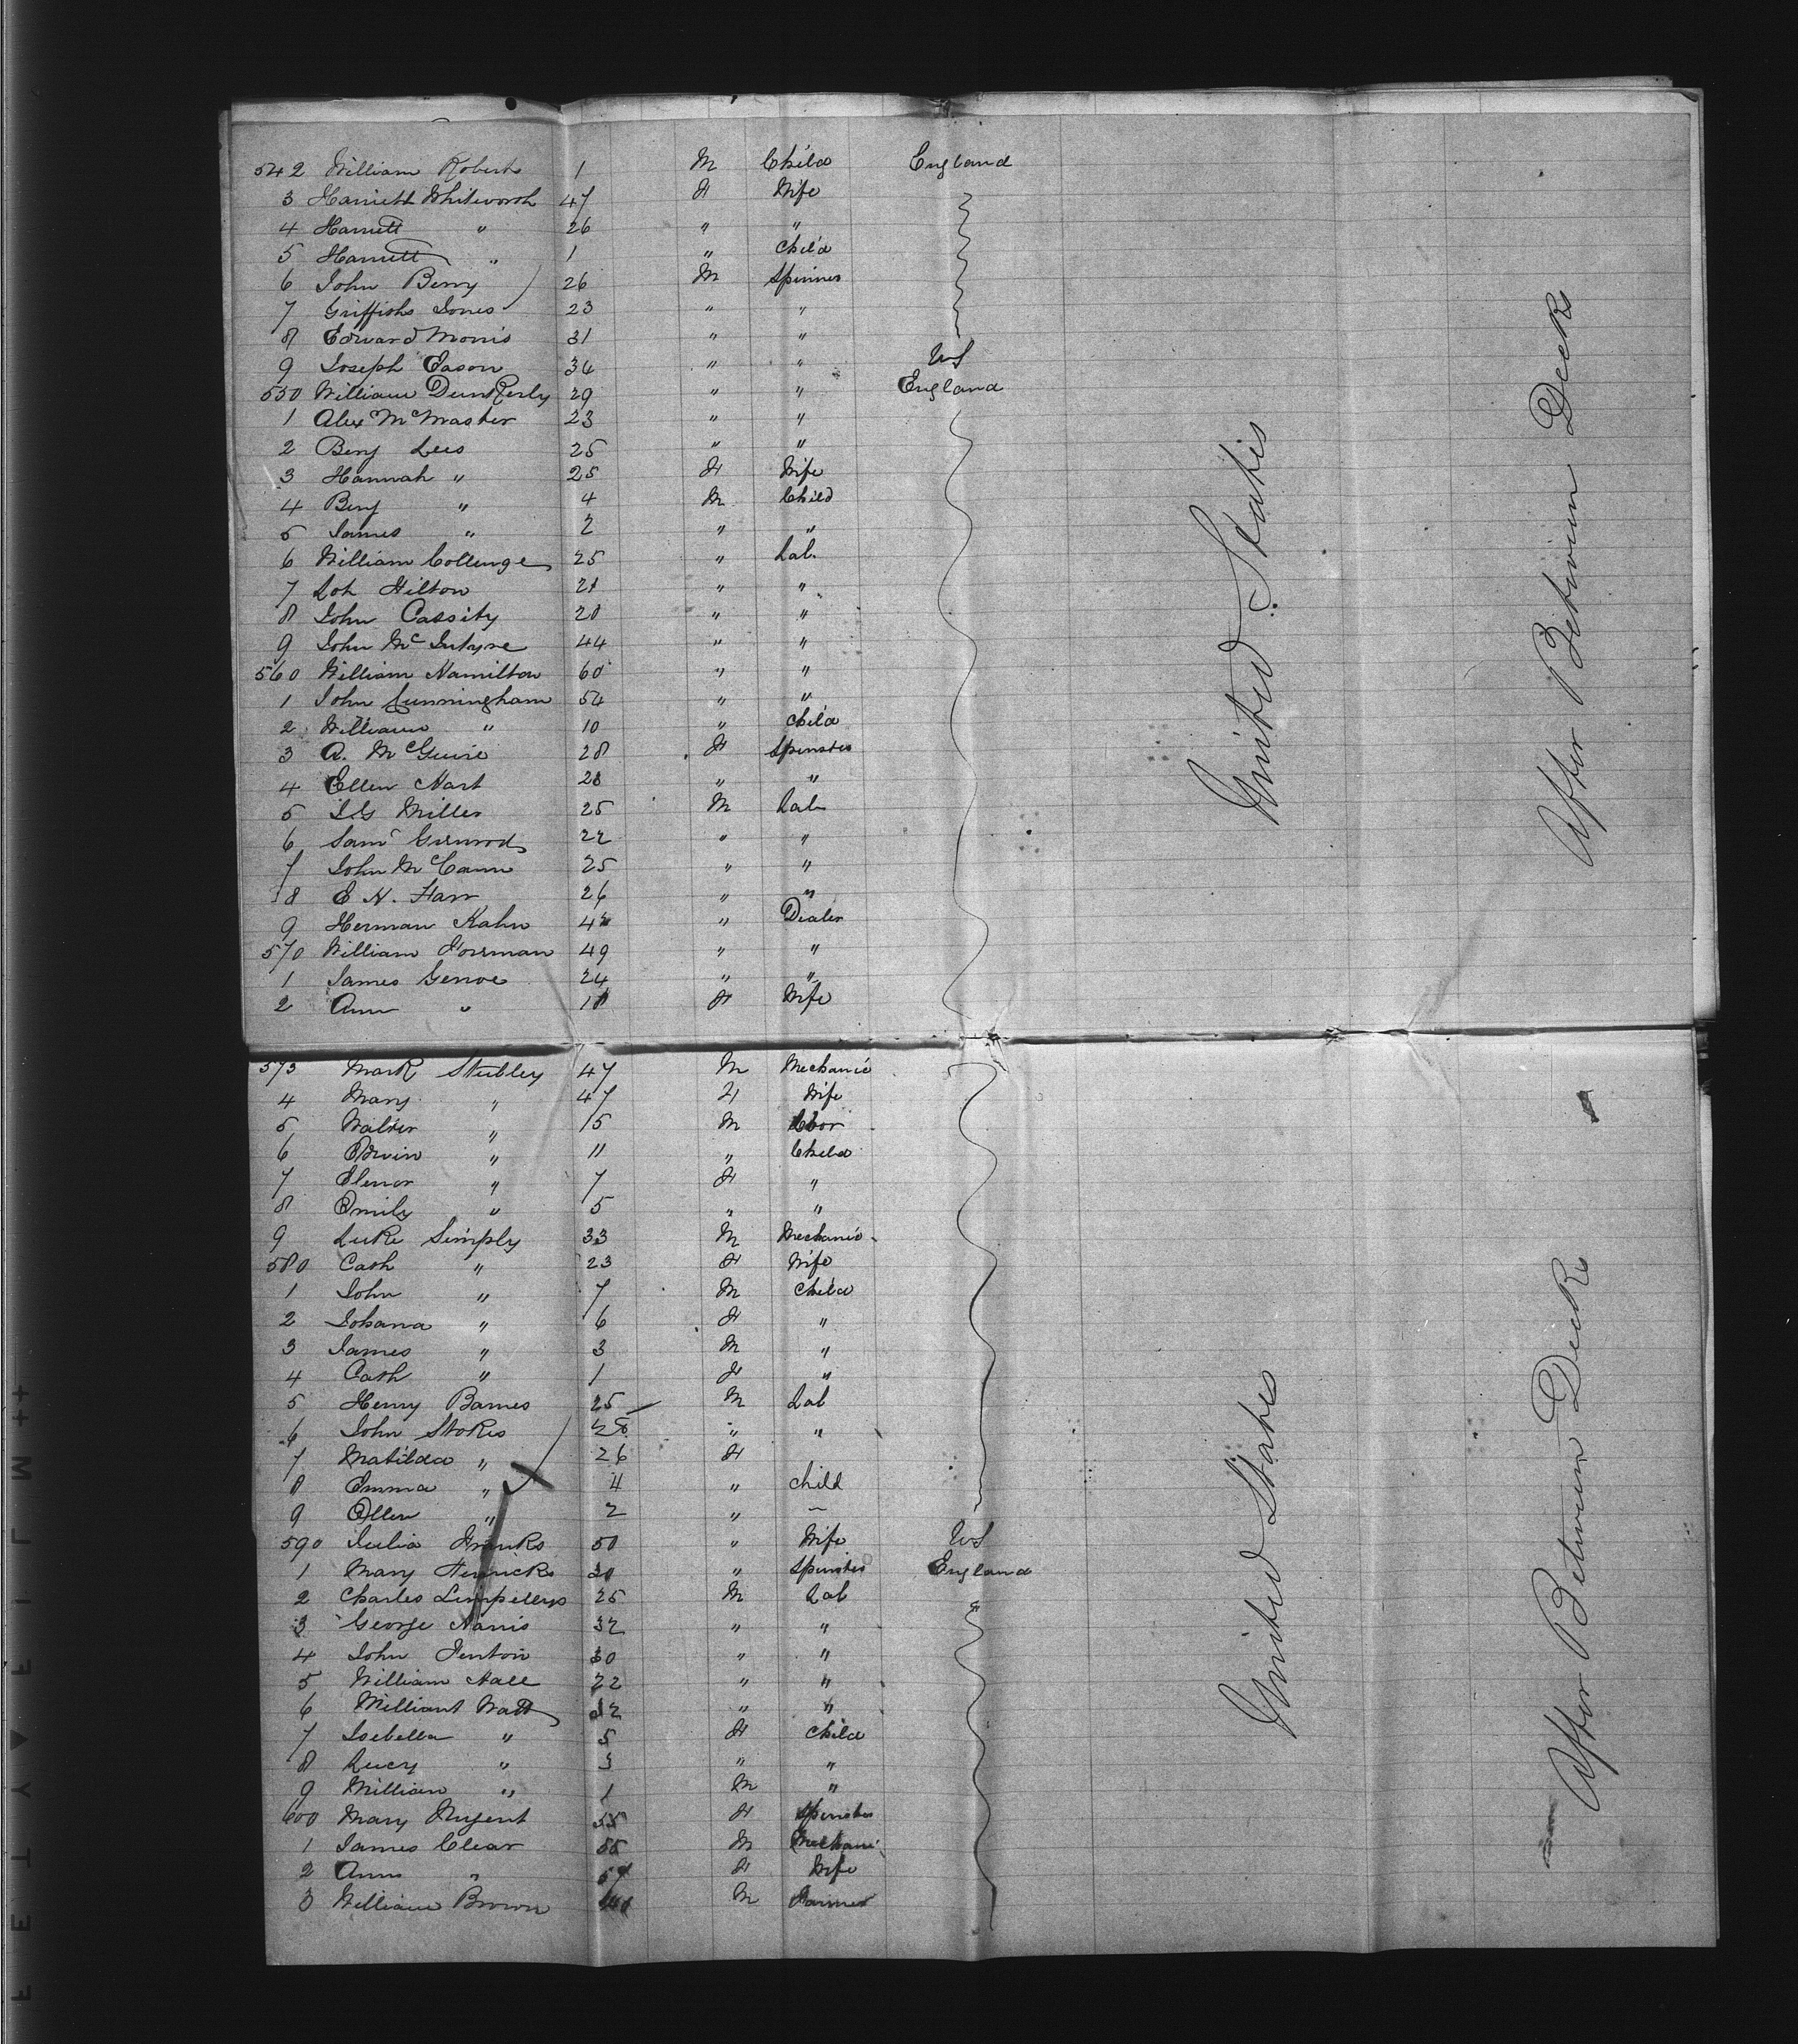 542 William Roberts 1 M Child England
3 Harriett Whitworth 47 F Wife
4 Harriett " 26 " "
5 Harriett " 1 " Child
6 John Berry 26 M Spinner
7 Griffiths Jones 23 " "
8 Edward Morris 31 " "
9 Joseph Eason 34 " " US
550 William Dunkerly 29 " " England
1 Alex McMaster 23 " "
2 Benj Lees 25 " "
3 Hannah " 25 F Wife
4 Benj " 4 M Child
5 James " 2 " "
6 William Collenge 25 " Lab
7 Lot Hilton 21 " "
8 John Cassity 20 " "
9 John McIntyre 44 " "
560 William Hamilton 60 " "
1 John Cunningham 54 " "
2 William " 10 " Child
3 A. McGuire 28 F Spinster
4 Ellen Hart 23 " "
5 J.G Miller 25 M Lab
6 Saml 22 " "
7 John McCann 25 " "
8 E H. Farr 26 " "
9 Herman Kahn " Dealer
570 William Foreman 49 " "
1 James Genoe 24 " "
2 Ann " F Wife
United States
After Between Decks
573 Mark Stubley 47 M Mechanic
4 Mary " 47 F Wife
5 Walter " 15 M
6 Orwin " 11 " Child
7 Elenor " 7 F "
8 Emily " 5 " "
9 Luke Simply 33 M Mechanic
580 Cath " 23 F Wife
1 John " 7 M Child
2 Johana " 6 F "
3 James " 3 M "
4 Cath " 1 F "
5 Henry Barnes 25 M Lab
6 John Stokes " "
7 Matilda " 26 F
8 Emma " 4 " Child
9 Ellen " 2 "
590 Julia Franks 50 " Wife US
1 Mary Henricks " Spinster England
2 Charles 25 M Lab
3 George Harris 32 " "
4 John Fenton 30 " "
5 William Hall 22 " "
6 William Watt 32 " "
7 Isebella " 5 F Child
8 Lucy " 3 " "
9 William " 1 M "
600 Mary Nugent 55 F Spinster
1 James Clear 55 M Mechanic
2 Ann " F Wife
3 William Brown M Farmer
United States
After Between Decks